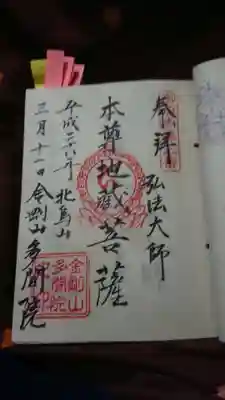 奉拝
弘法大師
本尊地蔵菩薩
平成二八年 北烏山
三月十一日 金剛山多聞院
金剛山
多聞院
印